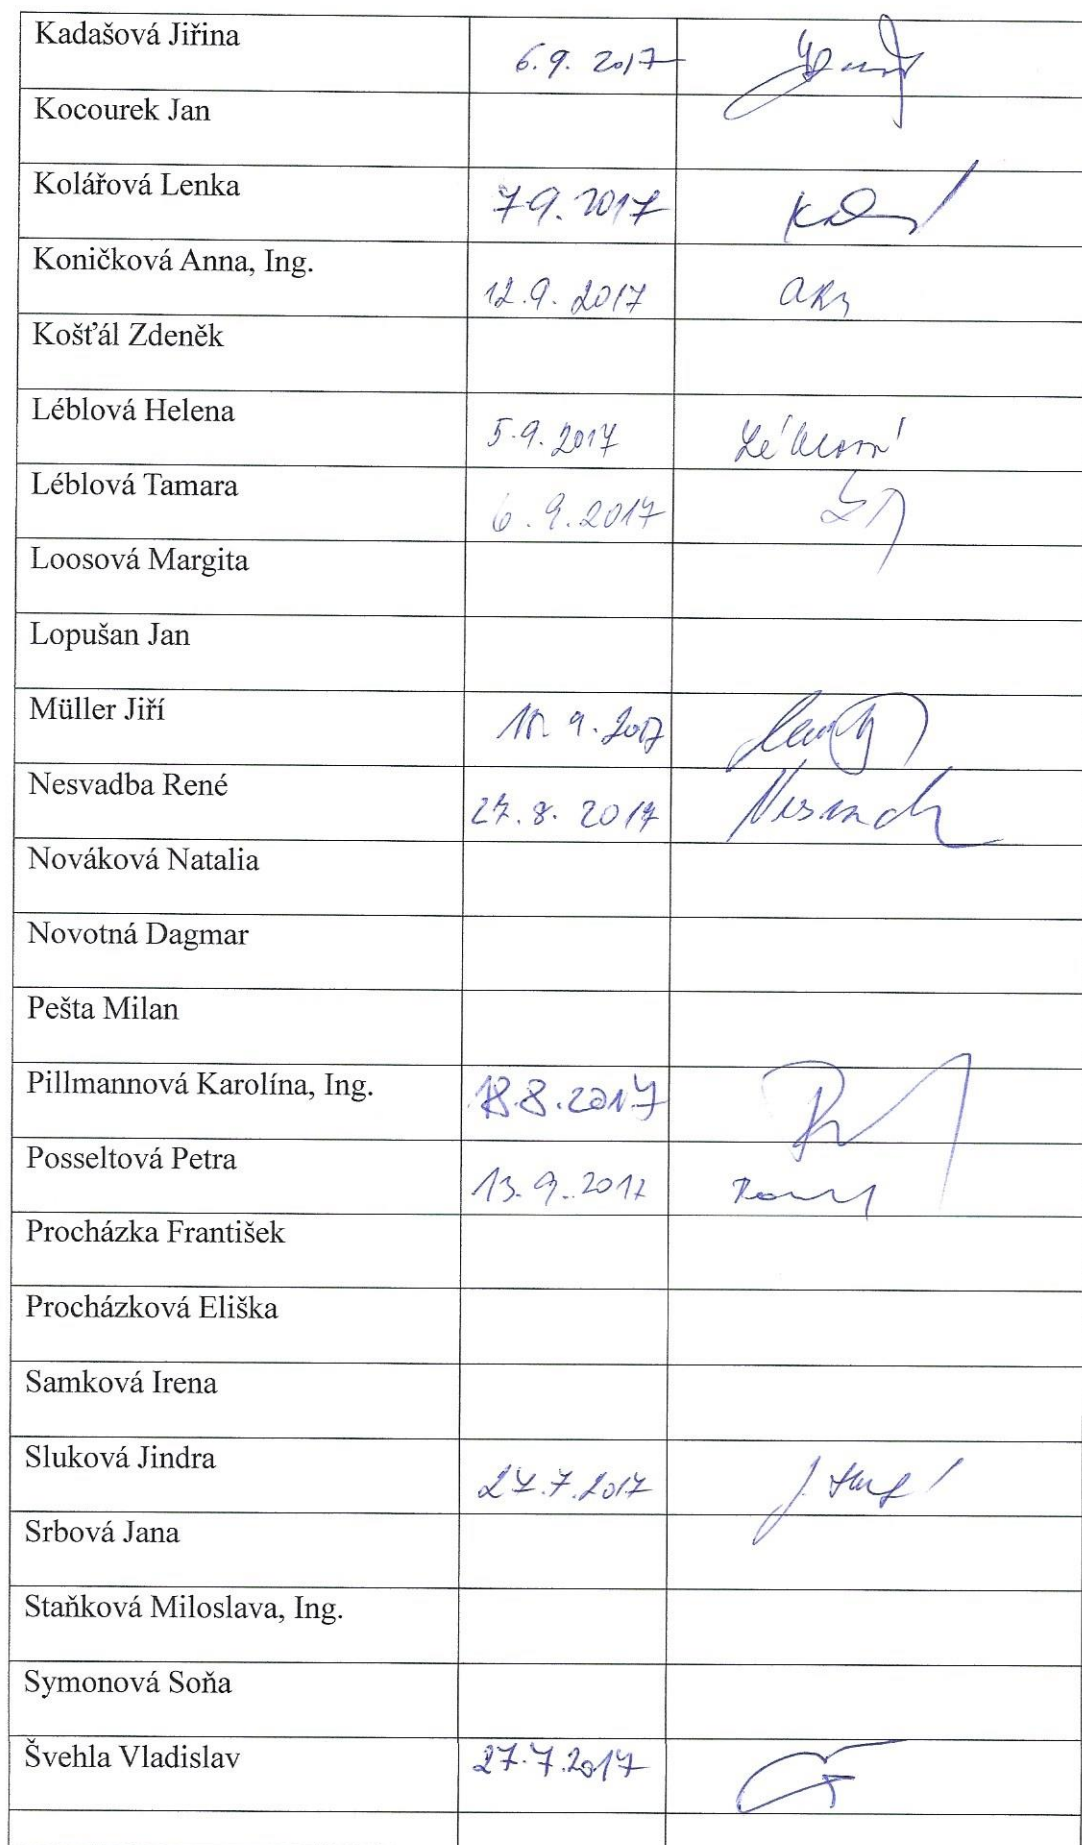 Kadašová Jiřina 6.9. 2017
Kocourek Jan
Kolářová Lenka 7.9. 2017
Koničková Anna, Ing. 12.9. 2017
Košťál Zdeněk
Léblová Helena 5.9. 2017 Léblová
Léblová Tamara 6.9.2017
Loosová Margita
Lopušan Jan
Müller Jiří
Nesvadba René 8. 2017
Nováková Natalia
Novotná Dagmar
Pešta Milan
Pillmannová Karolína, Ing. 18.8.2017
Posseltová Petra 13.9.2017
Procházka František
Procházková Eliška
Samková Irena
Sluková Jindra 27.7.2017
Srbová Jana
Staňková Miloslava, Ing.
Symonová Soňa
Švehla Vladislav 27.7.2017